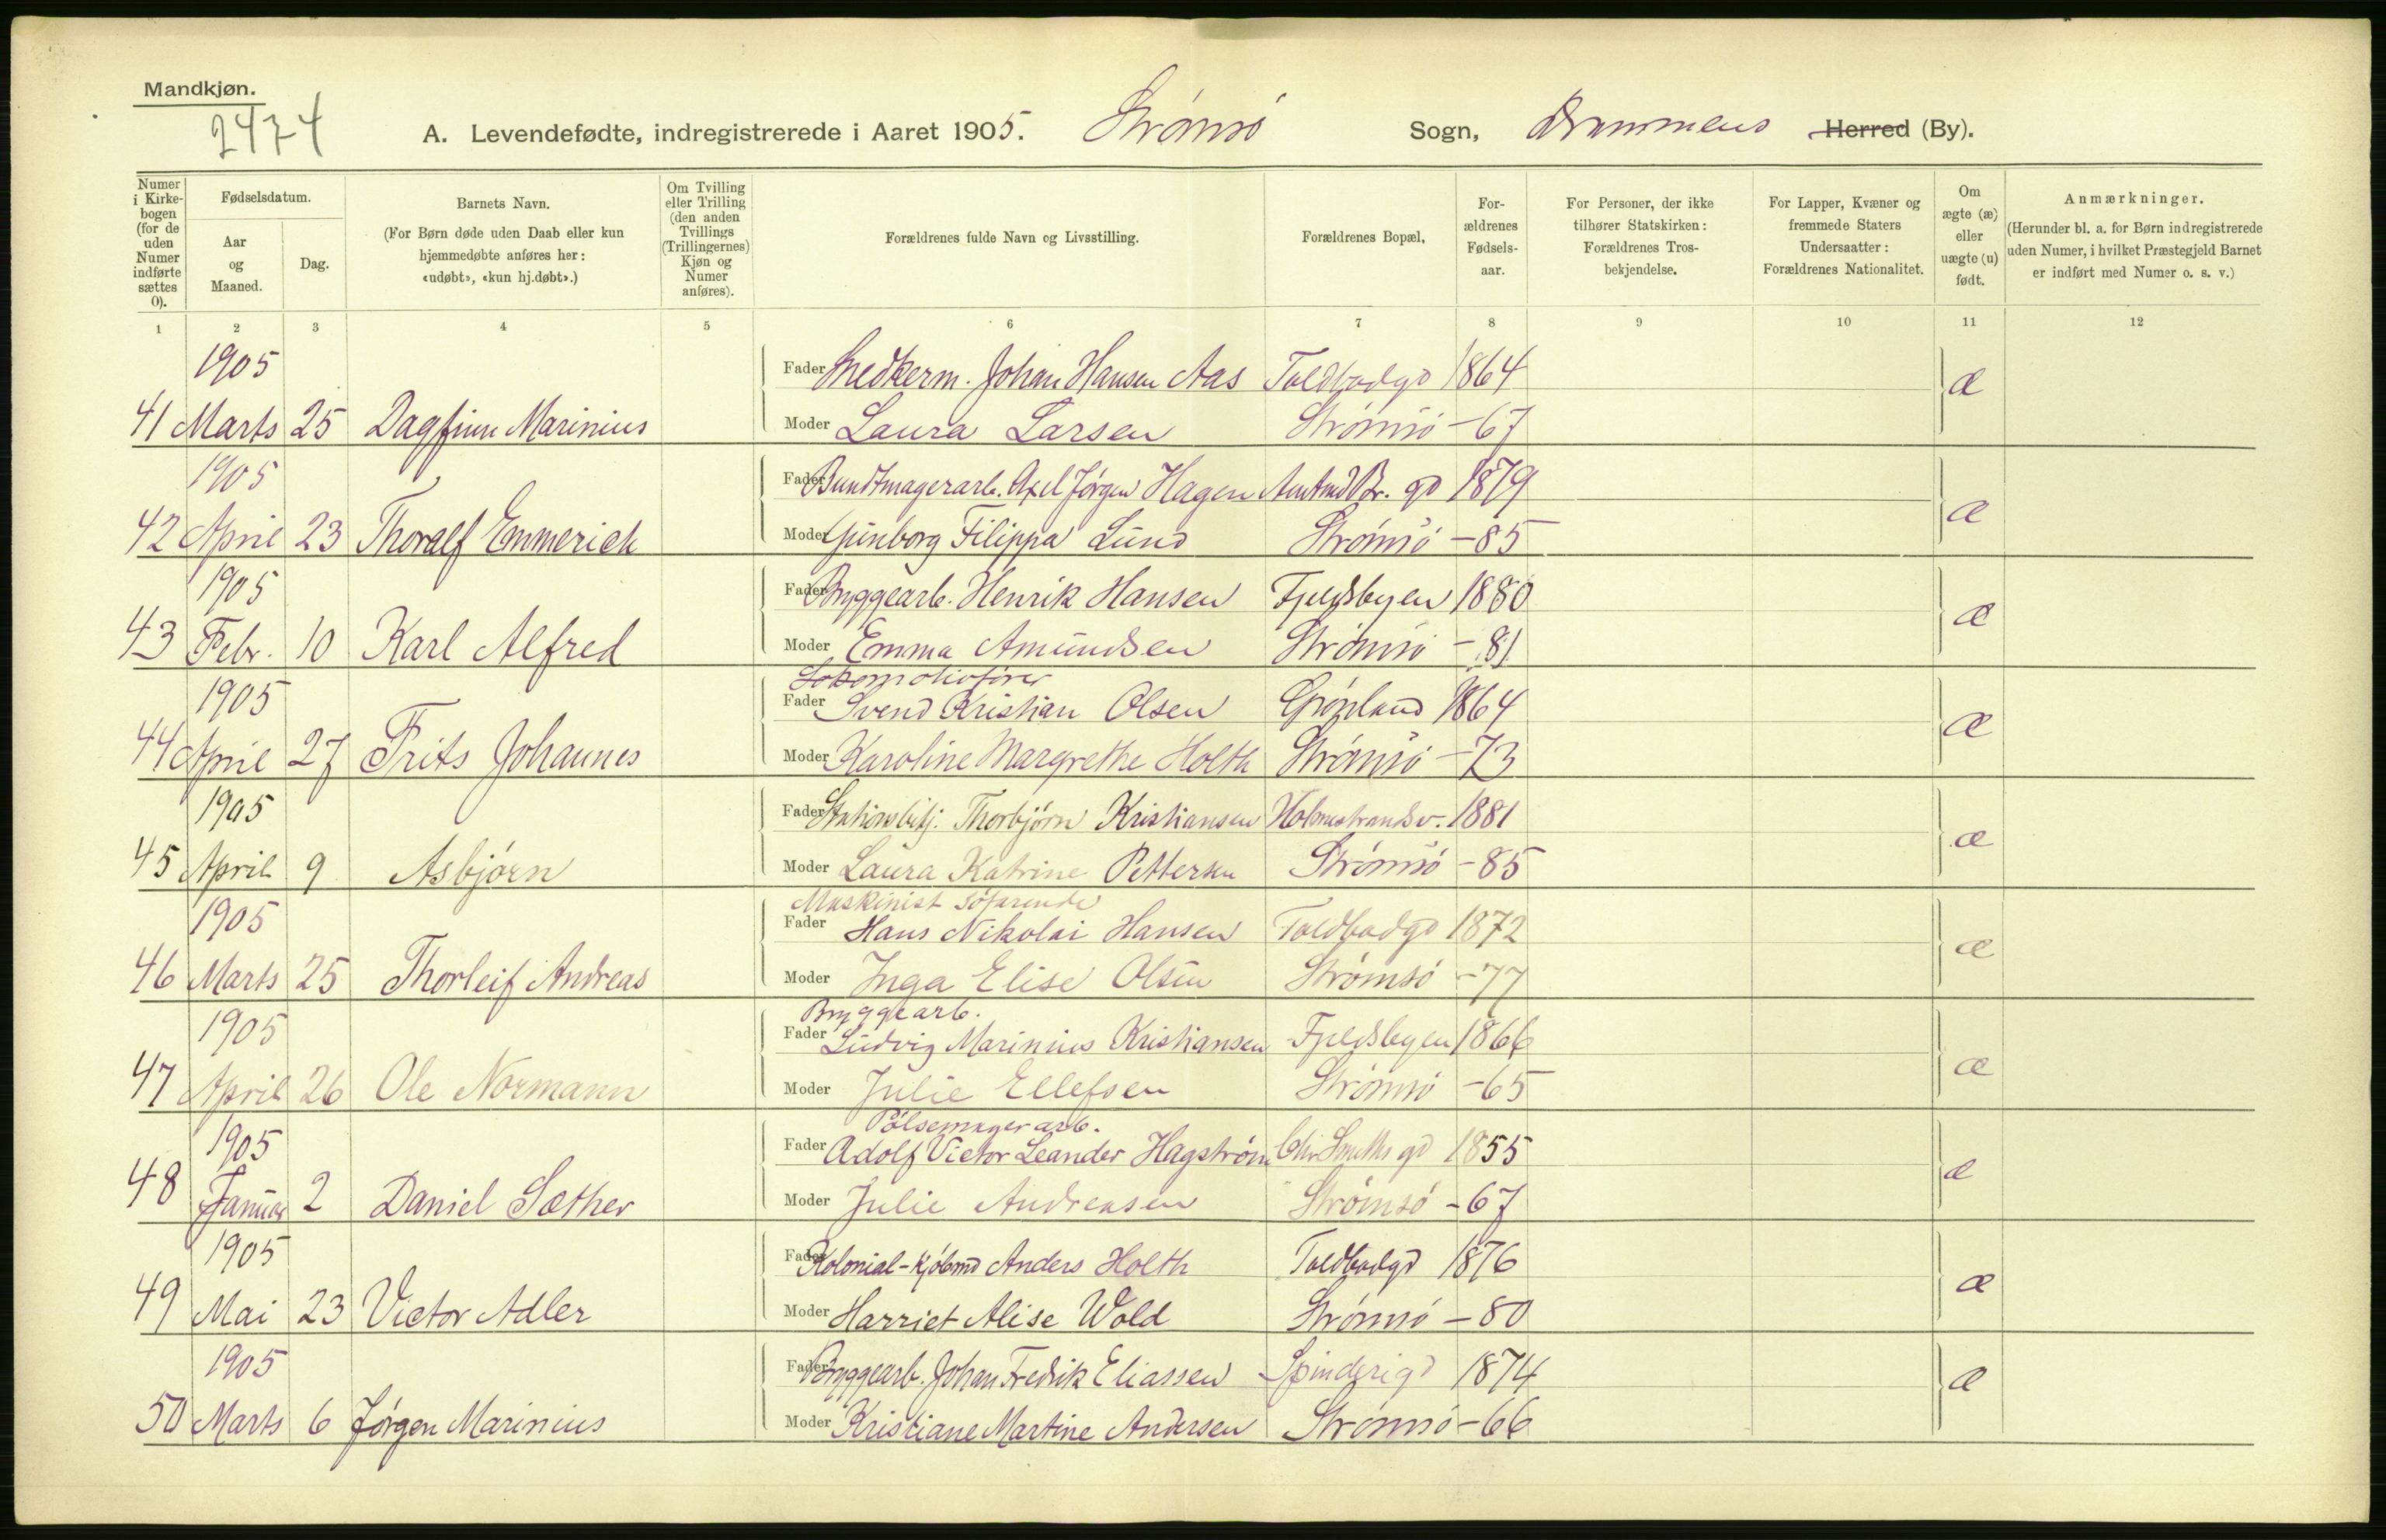 Mandkjøn.
2474
A. Levendefødte, indregistrerede i Aaret 1905. Strømsö Sogn, Drammens Herred (By).
Numer i Kirkebogen (for de uden Numer indførte sættes 0).
Fødselsdatum.
Aar og Maaned.
Dag.
Barnets Navn.
(For Børn døde uden Daab eller kun hjemmedøbte anføres her: «udøbt», «kun hj.døbt».)
Om Tvilling eller Trilling (den anden Tvillings (Trillingernes) Kjøn og Numer anføres).
Forældrenes fulde Navn og Livsstilling.
Forældrenes Bopæl,
Forældrenes Fødselsaar.
For Personer, der ikke tilhører Statskirken: Forældrenes Trosbekjendelse.
For Lapper, Kvæner og fremmede Staters Undersaatter: Forældrenes Nationalitet.
Om ægte (æ) eller uægte (u) født.
Anmærkninger.
(Herunder bl. a. for Børn indregistrerede uden Numer, i hvilket Præstegjeld Barnet er indført med Numer o. s. v.)
1 2 3 4 5 6 7 8 9 10 11 12
1905 Fader Snedkerm. Johan Hansen Aas Toldbodgd 1864 æ
41 Marts 25 Dagfinn Marinius Moder Laura Larsen Strömsö -67
1905 Fader Buntmagerarb. Axel Jörgen Hagen Amtmd Br. gd 1879 æ
42 April 23 Thoralf Emmerich Moder Gunborg Filippa Lund Strömsö -85
1905 Fader Bryggearb. Henrik Hansen Fjeldsbyen 1880 æ
43 Febr. 10 Karl Alfred Moder Emma Amundsen Strömsö -81
Lokomotivförer
1905 Fader Svend Kristian Olsen Grönland 1864 æ
44 April 27 Frits Johannes Moder Karoline Margrethe Holth Strömsö -73
1905 Fader Stationsbetj. Thorbjörn Kristiansen Holmestrandsv. 1881 æ
45 April 9 Asbjörn Moder Laura Katrine Pettersen Strömsö -85
Maskinist söfarende
1905 Fader Hans Nikolai Hansen Toldbodgd 1872 æ
46 Marts 25 Thorleif Andreas Moder Inga Elise Olsen Strömsö -77
Bryggearb.
1905 Fader Ludvig Marinius Kristiansen Fjeldsbyen 1866 æ
47 April 26 Ole Normann Moder Julie Ellefsen Strömsö -65
Pölsemagerarb.
1905 Fader Adolf Victor Leander Hagström Chr Smiths gd 1855 æ
48 Januar 2 Daniel Sæther Moder Julie Andreasen Strömsö -67
1905 Fader Kolonial-Kjöbmd Anders Holth Toldbodgd 1876 æ
49 Mai 23 Victor Adler Moder Harriet Alise Wold Strömsö -80
1905 Fader Bryggearb. Johan Fredrik Eliassen Spinderigd 1874 æ
50 Marts 6 Jörgen Marinius Moder Kristiane Martine Andersen Strömsö -66